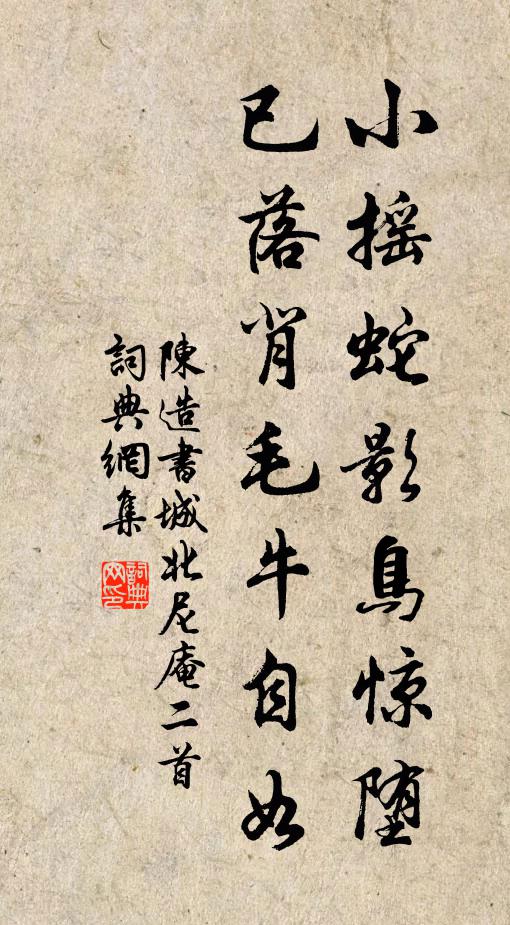 小摇蛇影鳥惊堕
已落背毛牛自如
陳造書城北尼庵二首
詞典網集
詞典网印